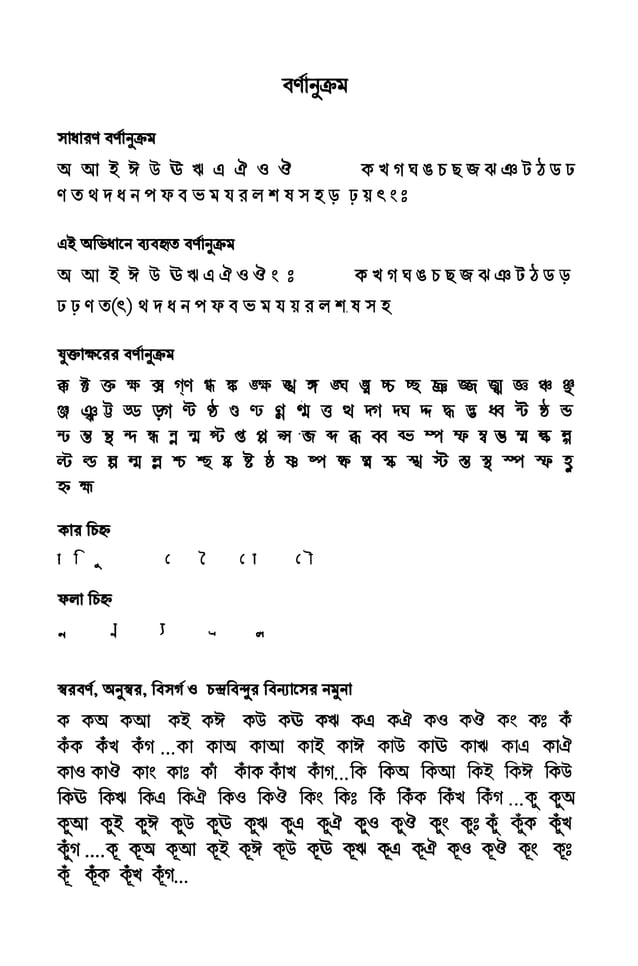 বর্ণানুক্রম
সাধারণ বর্ণানুক্রম
অ আ ই ঈ উ ঊ ঋ এ ঐ ও ঔ ক খ গ ঘ ঙ চ ছ জ ঝ ঞ ট ঠ ড ঢ
ণ ত থ দ ধ ন প ফ ব ভ ম য র ল শ ষ স হ ড় ঢ় য় ৎ ং ঃ
এই অভিধানে ব্যবহৃত বর্ণানুক্রম
অ আ ই ঈ উ ঊ ঋ এ ঐ ও ঔ ং ঃ ক খ গ ঘ ঙ চ ছ জ ঝ ঞ ট ঠ ড ড়
ঢ ঢ় ণ ত(ৎ) থ দ ধ ন প ফ ব ভ ম য য় র ল শ ষ স হ
যুক্তাক্ষরের বর্ণানুক্রম
ক্ক ক্ট ক্ত ক্ষ ক্স গ্ণ গ্ধ ঙ্ক ঙ্ক্ষ ঙ্খ ঙ্গ ঙ্ঘ ঙ্ম চ্চ চ্ছ জ্জ জ্ঝ জ্ঞ ঞ্চ ঞ্ছ
ঞ্জ ঞ্ঝ ট্ট ড্ড ড়্গ ণ্ট ণ্ঠ ণ্ড ণ্ঢ ণ্ণ ণ্ম ত্ত ত্থ দ্গ দ্ঘ দ্দ দ্ধ দ্ভ ধ্ব ন্ট ন্ঠ ন্ড
ন্ঢ ন্ত ন্থ ন্দ ন্ধ ন্ন ন্ম প্ট প্ত প্প প্স ব্জ ব্দ ব্ধ ব্ব ব্ভ ম্প ম্ফ ম্ব ম্ভ ম্ম ল্ক ল্গ
ল্ট ল্ড ল্প ল্ম ল্ল শ্চ শ্ছ ষ্ক ষ্ট ষ্ঠ ষ্ণ ষ্প ষ্ফ ষ্ম স্ক স্খ স্ট স্ত স্থ স্প স্ফ হ্ণ
হ্ন হ্ম
কার চিহ্ন
া ি ু ে ৈ ো ৌ
ফলা চিহ্ন
স্বরবর্ণ, অনুস্বর, বিসর্গ ও চন্দ্রবিন্দুর বিন্যাসের নমুনা
ক কঅ কআ কই কঈ কউ কঊ কঋ কএ কঐ কও কঔ কং কঃ কঁ
কঁক কঁখ কঁগ ...কা কাঅ কাআ কাই কাঈ কাউ কাঊ কাঋ কাএ কাঐ
কাও কাঔ কাং কাঃ কাঁ কাঁক কাঁখ কাঁগ...কি কিঅ কিআ কিই কিঈ কিউ
কিঊ কিঋ কিএ কিঐ কিও কিঔ কিং কিঃ কিঁ কিঁক কিঁখ কিঁগ ...কু কুঅ
কুআ কুই কুঈ কুউ কুঊ কুঋ কুএ কুঐ কুও কুঔ কুং কুঃ কুঁ কুঁক কুঁখ
কুঁগ ....কূ কূঅ কূআ কূই কূঈ কূউ কূঊ কূঋ কূএ কূঐ কূও কূঔ কূং কূঃ
কূঁ কূঁক কূঁখ কূঁগ...